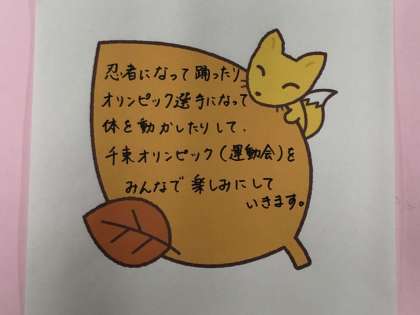 忍者になって踊ったり
オリンピック選手になって
体を動かしたりして、
千束オリンピック(運動会)を
みんなで楽しみにして
いきます。